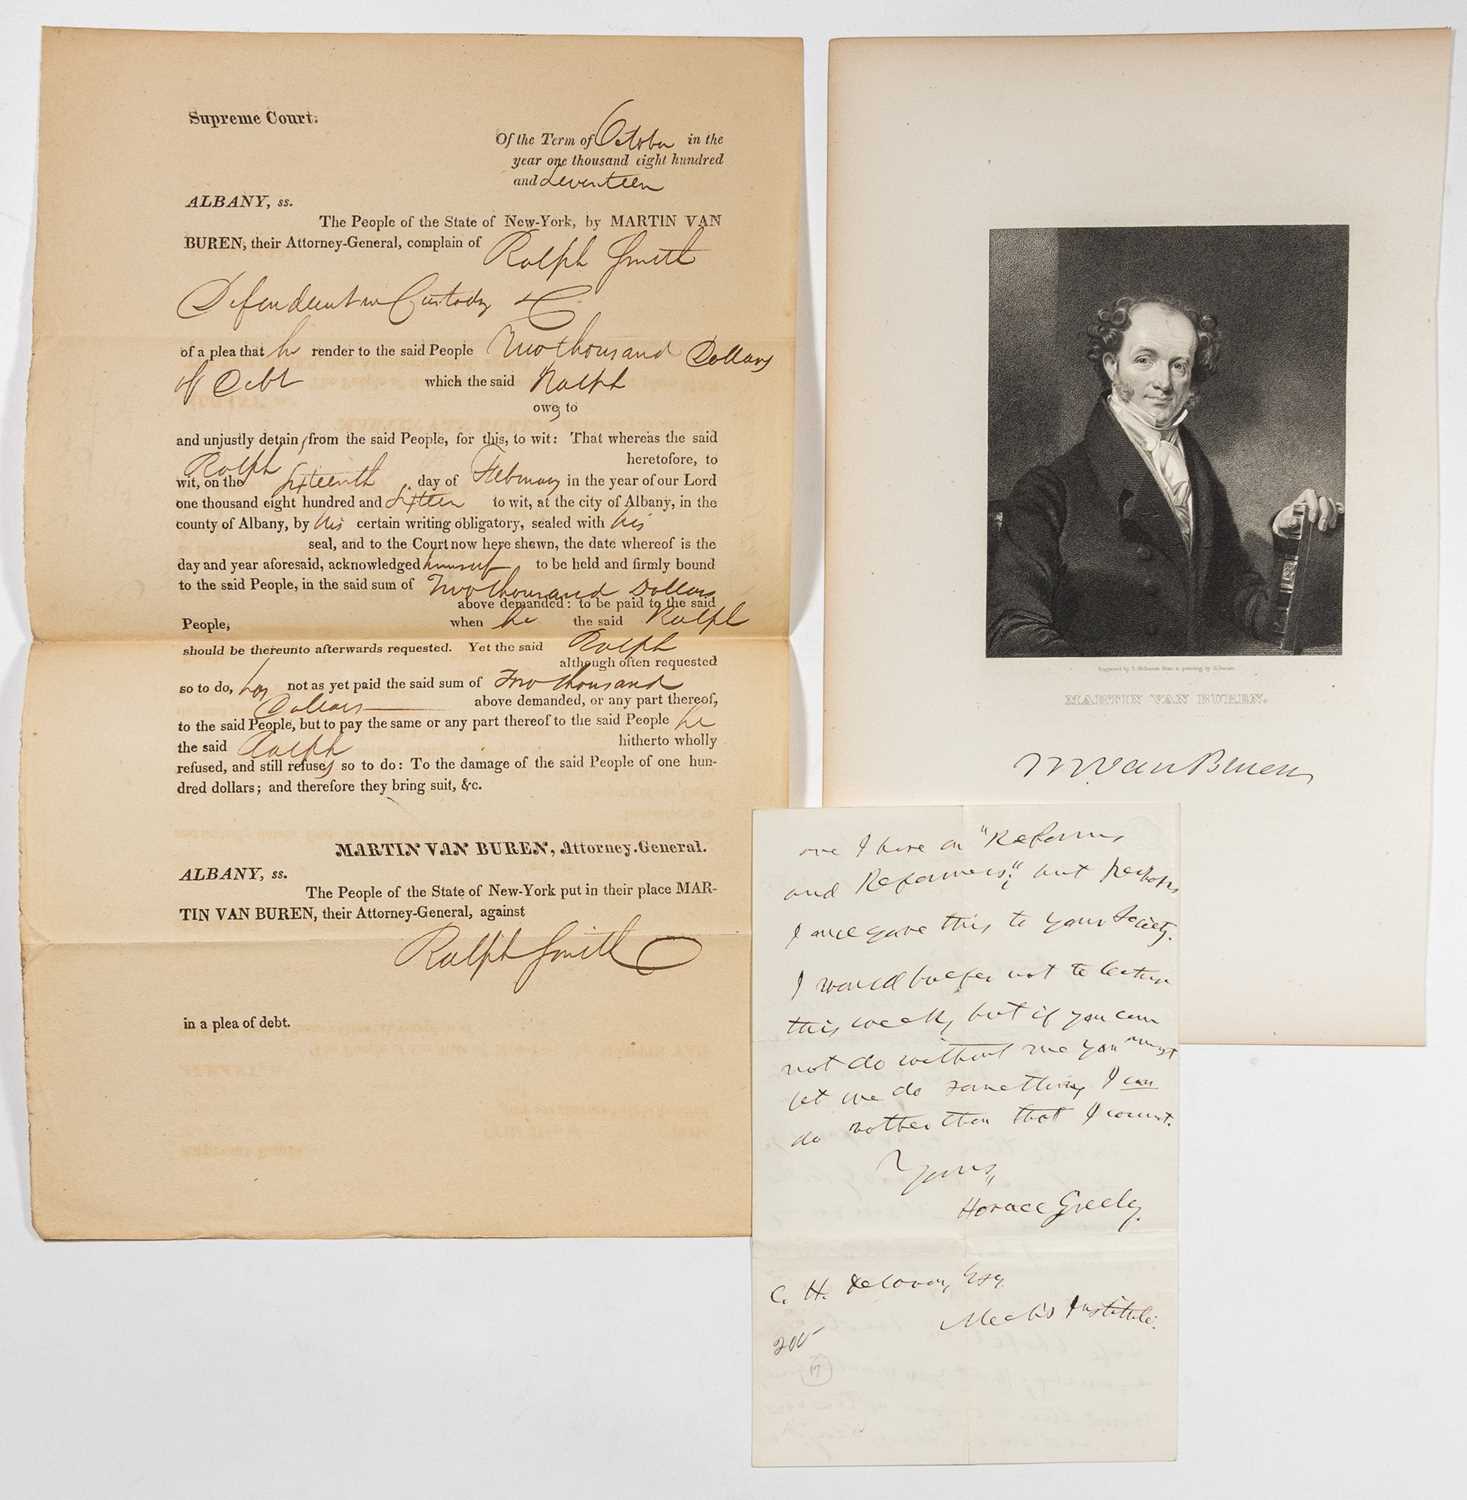 Supreme Court.
Of the Term of October in the
year one thousand eight hundred
and Seventeen
ALBANY, ss.
The People of the State of New-York, by MARTIN VAN
BUREN, their Attorney-General, complain of Ralph Smith
Defendant in Custody &C
of a plea that he render to the said People Two thousand Dollars
of Debt which the said Ralph
owes to
and unjustly detains from the said People, for this, to wit: That whereas the said
Ralph heretofore, to
wit, on the Sixteenth day of February in the year of our Lord
one thousand eight hundred and Sixteen to wit, at the city of Albany, in the
county of Albany, by his certain writing obligatory, sealed with his
seal, and to the Court now here shewn, the date whereof is the
day and year aforesaid, acknowledged himself to be held and firmly bound
to the said People, in the said sum of Two thousand Dollars
above demanded: to be paid to the said
People, when he the said Ralph
should be thereunto afterwards requested. Yet the said Ralph
although often requested
so to do, has not as yet paid the said sum of Two thousand
Dollars above demanded, or any part thereof,
to the said People, but to pay the same or any part thereof to the said People he
the said Ralph hitherto wholly
refused, and still refuses so to do: To the damage of the said People of one hun-
dred dollars; and therefore they bring suit, &c.
MARTIN VAN BUREN, Attorney-General.
ALBANY, ss.
The People of the State of New-York put in their place MAR-
TIN VAN BUREN, their Attorney-General, against
Ralph Smith
in a plea of debt.
MARTIN VAN BUREN.
M Van Buren
one I have on "Reforms
and Reformers," but perhaps
I once gave this to your Society.
I would prefer not to lecture
this week, but if you can
not do without me you must
let me do something I can
do rather than that I cannot.
Yours,
Horace Greeley.
C. H. Delavan, Esq.
Mech's Institute.
200
17